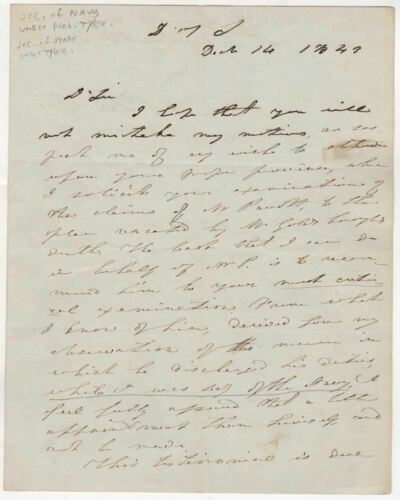 Sec. of Navy
under Pres. Tyler.
Sec. of State
under Tyler.
D. of S
Dec 14 1843
Dr Sir
I hope that you will
not mistake my motives, or sus-
pect me of any wish to obtrude
upon your proper province, when
I solicit your examination of
the claims of Mr to the
place vacated by Mr
death. The best that I can do
in behalf of Mr P. is to recom-
mend him to your most criti-
cal examination. From what
I know of him, derived from my
observation of the manner in
which he discharged his duties,
while I was Sec. of the Navy, I
feel fully assured that a better
appointment than himself could
not be made.
This testimonial is due